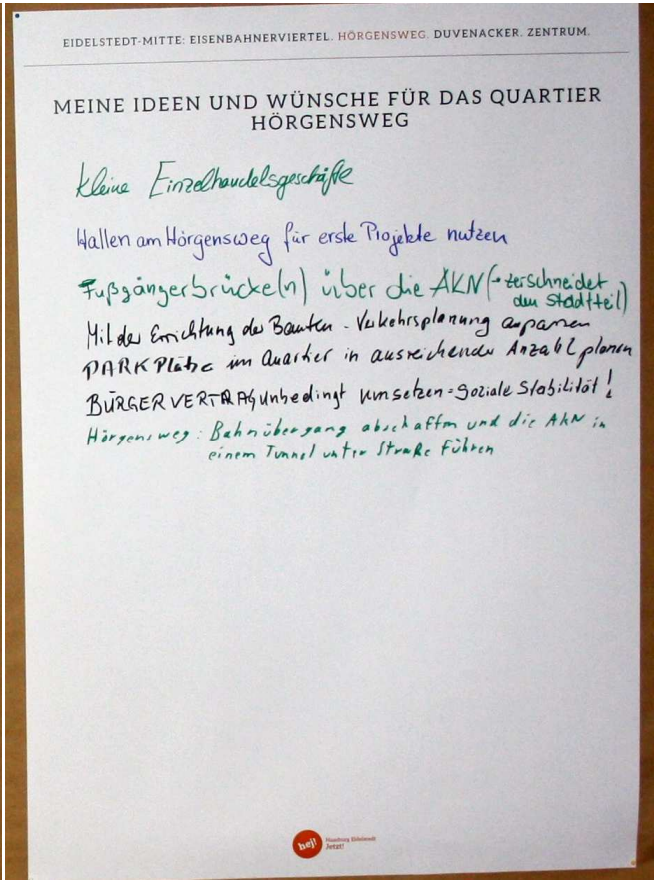 EIDELSTEDT-MITTE: EISENBAHNERVIERTEL. HÖRGENSWEG. DUVENACKER. ZENTRUM.
MEINE IDEEN UND WÜNSCHE FÜR DAS QUARTIER
HÖRGENSWEG
kleine Einzelhandelsgeschäfte
Hallen am Hörgensweg für erste Projekte nutzen
Fußgängerbrücke(n) über die AKN (→ zerschneidet
den Stadtteil)
Mit der Errichtung der Bauten - Verkehrsplanung anpassen
PARKPlätze im Quartier in ausreichender Anzahl planen
BÜRGERVERTRAG unbedingt umsetzen = Soziale Stabilität!
Hörgensweg: Bahnübergang abschaffen und die AKN in
einem Tunnel unter Straße führen
hej!
Hamburg Eidelstedt
Jetzt!